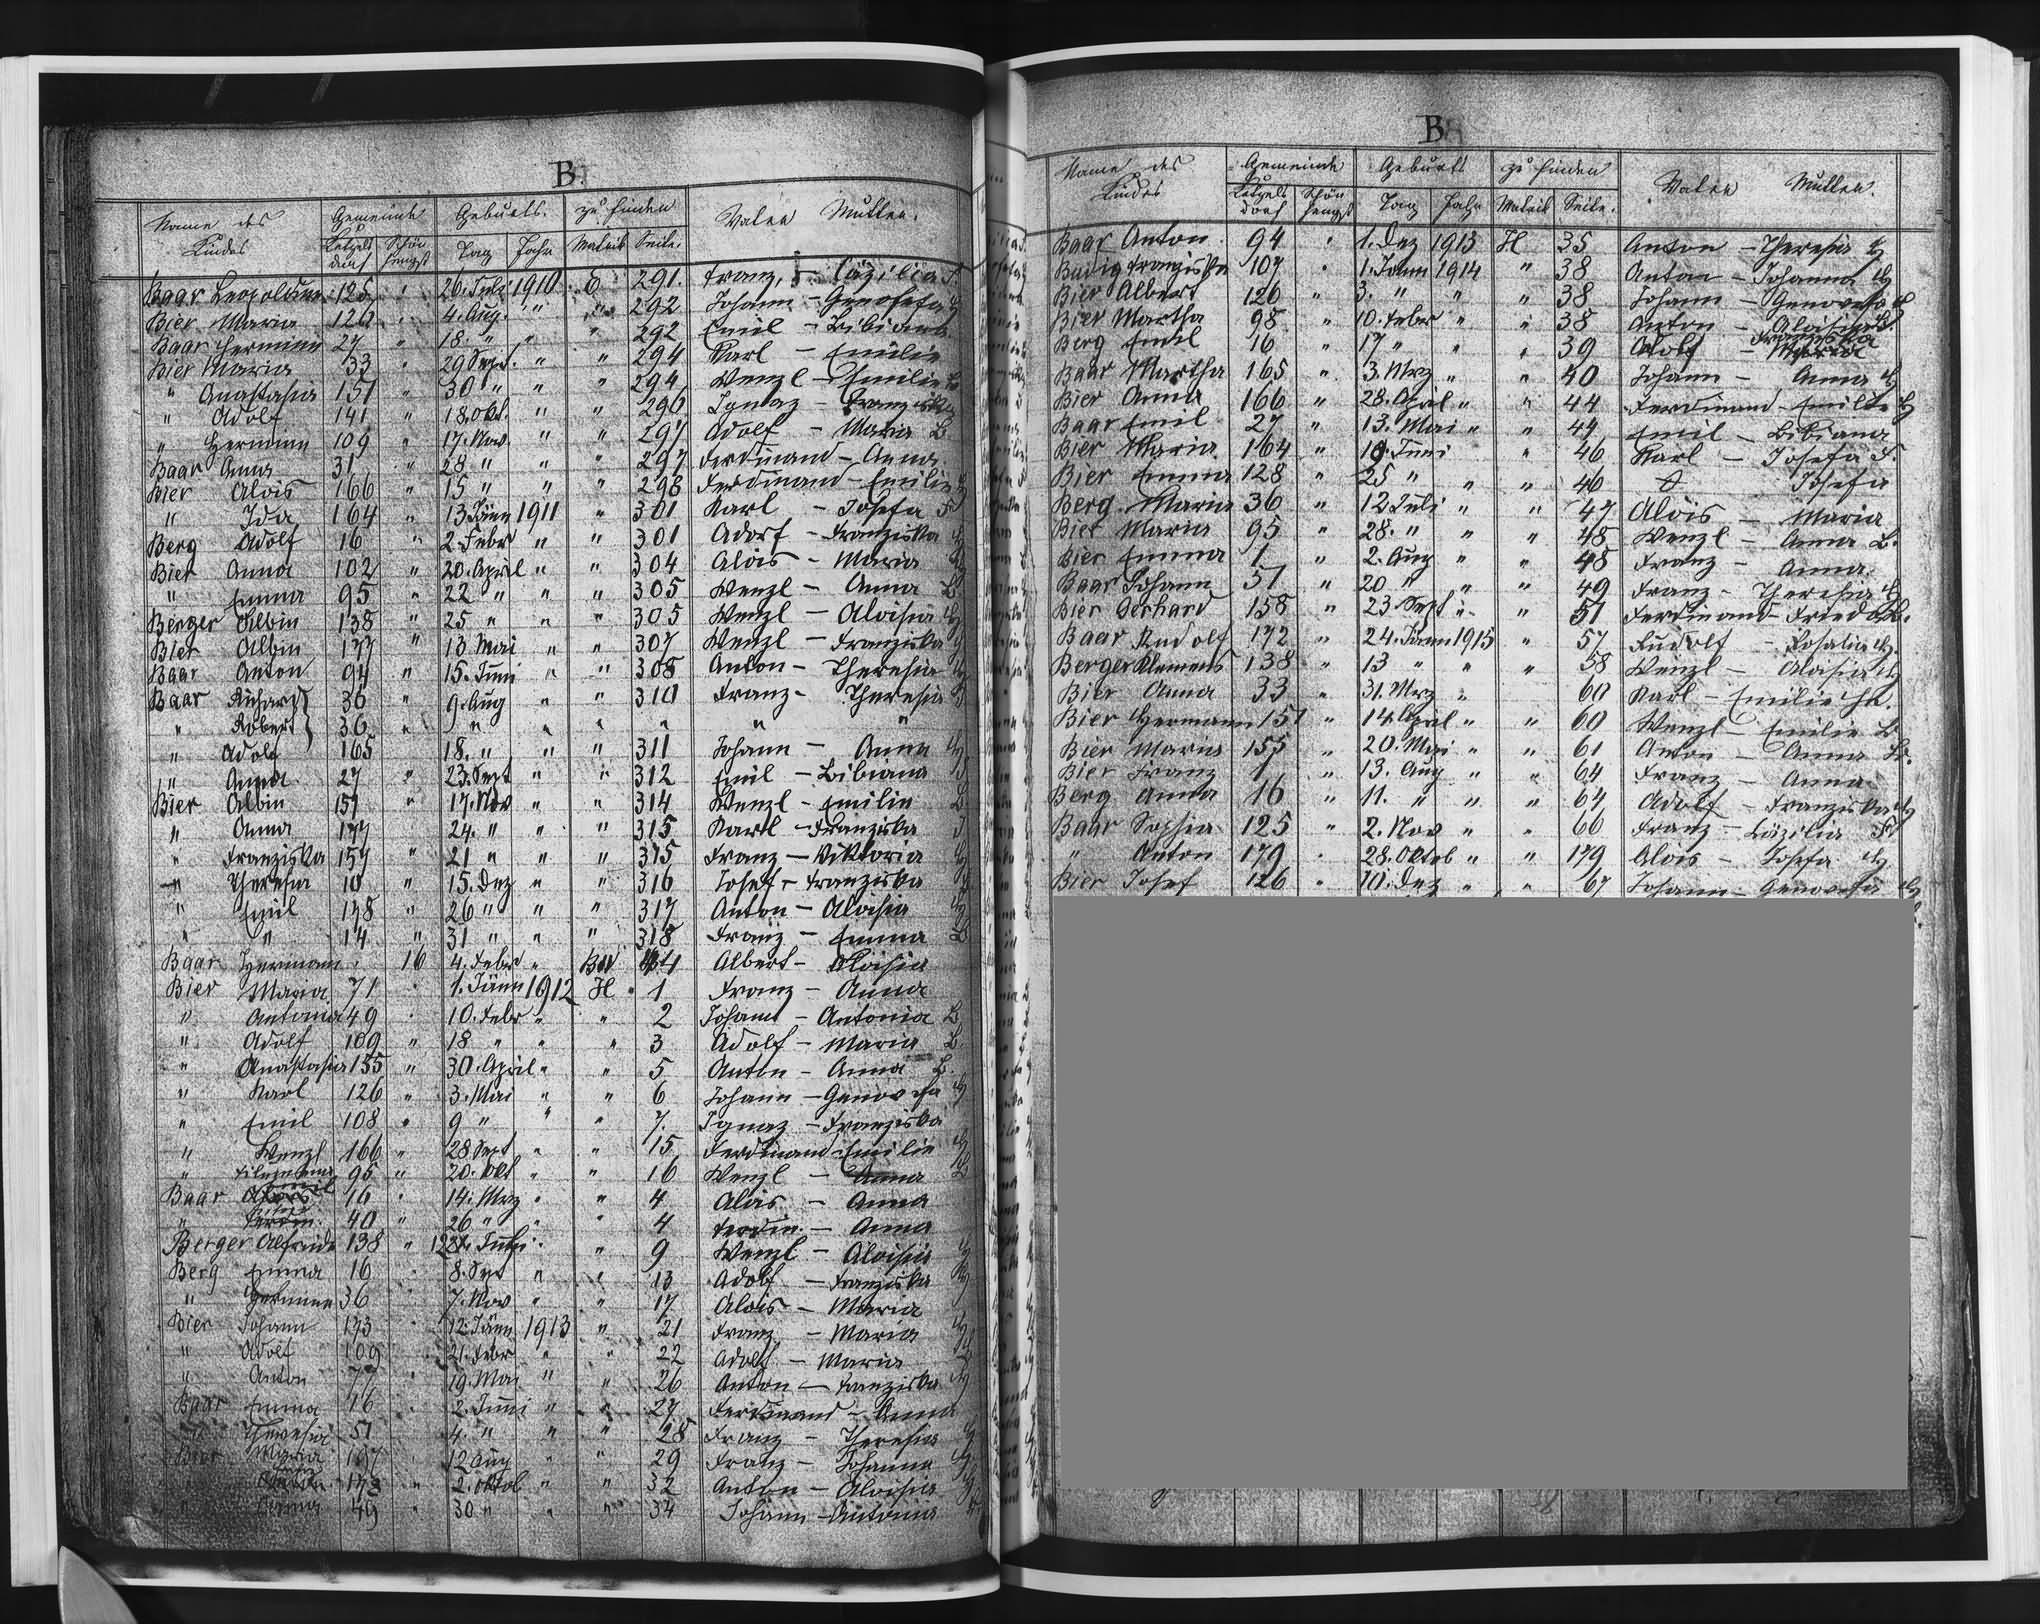 B.
Name des Kindes Gemeinde Geburts. zu finden Vater Mutter.
Ketzelsdorf Schönhengst Tag Jahr Matrik Seite.
Baar Leopoldine 125 " 26. Juli 1910 6 291. Franz, Cäzilia
Bier Maria 126 " 4. Aug. " " 292 Johann - Genofefa
Baar Hermine 27 " 18. " " " 292 Emil - Bibiana
Bier Maria 33 " 29 Sept. " " 294 Karl - Emilie
" Anastasia 151 " 30 " " " 294 Wenzl - Emilie B
" Adolf 141 " 18. Okt. " " 296 Ignaz - Franziska
" Hermine 109 " 17. Nov. " " 297 Adolf - Maria B
Baar Anna 31 " 28 " " " 297 Ferdinand - Anna
Bier Alois 166 " 15 " " " 298 Ferdinand - Emilie
" Ida 164 " 13 Jänn 1911 " 301 Karl - Josefa
Berg Adolf 16 " 2. Febr " " 301 Adolf - Franziska
Bier Anna 102 " 20. April " " 304 Alois - Maria
" Emma 95 " 22 " " " 305 Wenzl - Anna B
Berger Albin 138 " 25 " " " 305 Wenzl - Aloisia
Bier Albin 177 " 13 Mai " " 307 Wenzl - Franziska
Baar Anton 94 " 15. Juni " " 308 Anton - Theresia
Baar Richard 36 " 9. Aug " " 310 Franz - Theresia
" Robert 36 " " " " " "
" Adolf 165 18. " " " 311 Johann - Anna
" Anna 27 " 23. Sept " " 312 Emil - Bibiana
Bier Albin 151 " 17. Nov " " 314 Wenzl - Emilie B
" Anna 177 24. " " " 315 Karl - Franziska
" Franziska 157 " 21 " " " 315 Franz - Viktoria
" Theresia 10 " 15. Dez " " 316 Josef - Franziska
" Emil 178 " 26 " " " 317 Anton - Aloisia
" " 14 " 31 " " " 318 Franz - Emma B
Baar Hermann 16 4. Febr " 44 Albert - Aloisia
Bier Maria 71 " 1. Jänn 1912 H 1 Franz - Anna
" Antonia 49 " 10. Febr " " 2 Johann - Antonia B
" Adolf 109 " 18 " " " 3 Adolf - Maria B
" Anastasia 155 " 30. April " " 5 Anton - Anna B.
" Karl 126 " 3. Mai " " 6 Johann - Genovefa
" Emil 108 " 9 " " " 7. Ignaz - Franziska
" Wenzl 166 " 28 Sept " " 15 Ferdinand - Emilie
" Filomena 95 " 20. Okt " " 16 Wenzl - Anna B
Baar Emil 16 " 14. Mrz " " 4 Alois - Anna
" 40 " 26 " " " 4 Ferdin. - Anna
Berger Alfrida 138 " Juli " " 9 Wenzl - Aloisia
Berg Emma 16 " 8. Sept " " 13 Adolf - Franziska
" Hermine 36 " 7. Nov " " 17 Alois - Maria
Bier Johann 173 " 12. Jänn 1913 " 21 Franz - Maria
" Adolf 109 " 21. Febr " " 22 Adolf - Maria
" Anton 77 " 19. Mai " " 26 Anton - Franziska
Baar Emma 16 " 2. Juni " " 27 Ferdinand - Anna
" Theresia 51 4. " " " 28 Franz - Theresia
Bier Maria 167 12 Aug " " 29 Franz - Johanna
178 " 2. Oktob " " 32 Anton - Aloisia
" Anna 49 " 30 " " " 34 Johann - Antonia
B
Name des Kindes Gemeinde Geburts zu finden Vater Mutter.
Ketzelsdorf Schönhengst Tag Jahr Matrik Seite.
Baar Anton 94 " 1. Dez 1913 H 35 Anton - Theresia
Budig Franziska 107 " 1. Jänn 1914 " 38 Anton - Johanna
Bier Albert 126 " 3. " " " 38 Johann - Genovefa
Bier Martha 98 " 10. Febr " " 38 Anton - Aloisia B.
Berg Emil 16 " 17 " " " 39 Adolf - Franziska
Baar Martha 165 " 3. Mrz " " 40 Johann - Anna
Bier Anna 166 " 28. April " " 44 Ferdinand - Emilie
Baar Emil 27 " 13. Mai " " 44 Emil - Bibiana
Bier Maria 164 " Juni " 46 Karl - Josefa
Bier Emma 128 " 25 " " " 46 Josefa
Berg Maria 36 " 12 Juli " " 47 Alois - Maria
Bier Maria 95 " 28. " " " 48 Wenzl - Anna B.
Bier Emma 1 " 2. Aug " " 48 Franz - Anna.
Baar Johann 51 " 20 " " " 49 Franz - Theresia
Bier Gerhard 158 " 23 Sept " " 51 Ferdinand - Frieda
Baar Rudolf 172 " 24. Jänn 1915 " 57 Rudolf - Rosalia
Berger Klemens 138 " 13 " " " 58 Wenzl - Aloisia
Bier Anna 33 " 31. Mrz " 60 Karl - Emilie
Bier Hermann 151 " 14. April " " 60 Wenzl - Emilie B
Bier Maria 155 " 20. Mai " " 61 Anton - Anna
Bier Franz 1 " 13. Aug " " 64 Franz - Anna
Berg Anna 16 " 11. " " " 64 Adolf - Franziska
Baar Sophia 125 " 2. Nov " " 66 Franz - Cäzilia
" Anton 179 " 28. Oktob " " 179 Alois - Josefa
Bier Josef 126 " 10. Dez " " 67 Johann - Genovefa